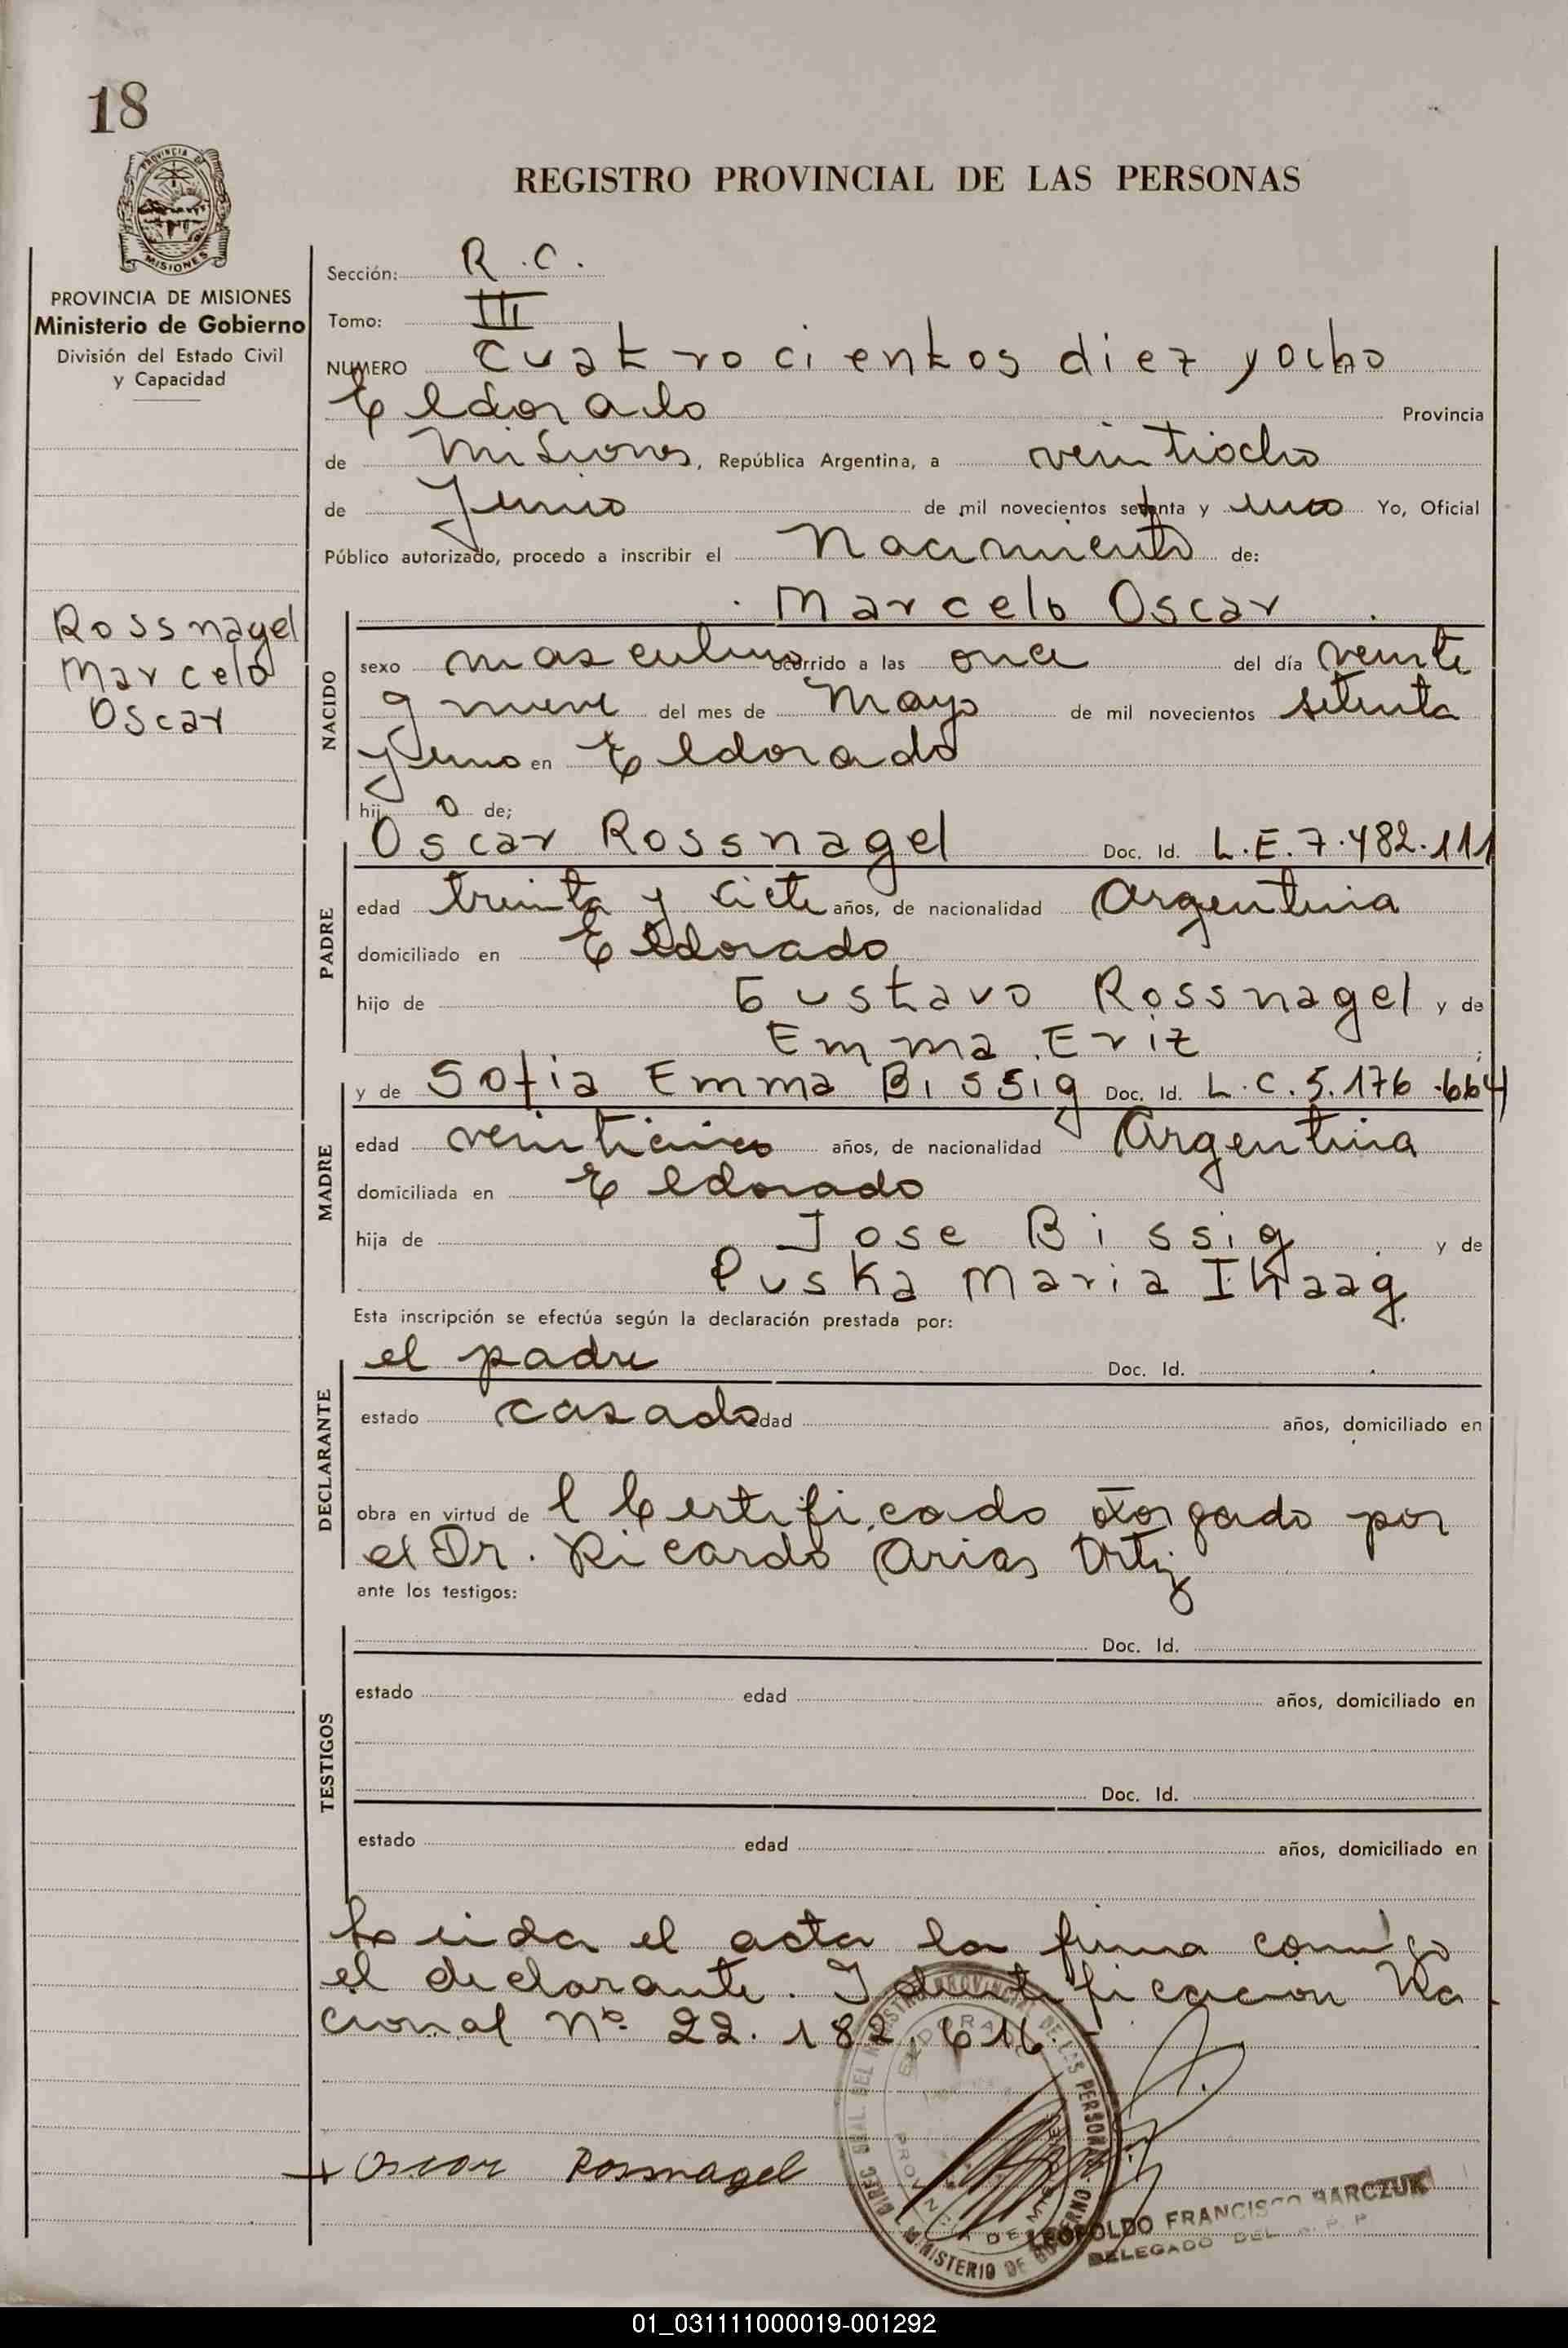 18
PROVINCIA DE
MISIONES
REGISTRO PROVINCIAL DE LAS PERSONAS
PROVINCIA DE MISIONES
Ministerio de Gobierno
División del Estado Civil
y Capacidad
Rossnagel
Marcelo
Oscar
Sección: R.C.
Tomo: III
NUMERO Cuatrocientos diez y ocho En
Eldorado Provincia
de Misiones, República Argentina, a veintiocho
de Junio de mil novecientos setenta y uno Yo, Oficial
Público autorizado, procedo a inscribir el Nacimiento de:
Marcelo Oscar
NACIDO
sexo masculino ocurrido a las once del día veinte
y nueve del mes de Mayo de mil novecientos setenta
y uno en Eldorado
hij o de;
PADRE
Oscar Rossnagel Doc. Id. L.E. 7.482.111
edad treinta y siete años, de nacionalidad Argentina
domiciliado en Eldorado
hijo de Gustavo Rossnagel y de
Emma Eriz ;
MADRE
y de Sofia Emma Bissig Doc. Id. L.C. 5.176.664
edad veinticinco años, de nacionalidad Argentina
domiciliada en Eldorado
hija de Jose Bissig y de
Maria
Esta inscripción se efectúa según la declaración prestada por:
DECLARANTE
el padre Doc. Id.
estado casado edad años, domiciliado en
obra en virtud de l Certificado otorgado por
el Dr. Ricardo Arias Ortiz
ante los testigos:
TESTIGOS
Doc. Id.
estado edad años, domiciliado en
Doc. Id.
estado edad años, domiciliado en
Leida el acta la firma conmigo
el declarante. Identificacion Na
cional Nº 22.182.616.-
Oscar Rossnagel
DIREC. GRAL. DEL REGISTRO PROVINCIAL DE LAS PERSONAS
ELDORADO
PROVINCIA DE MISIONES
MINISTERIO DE GOBIERNO
LEOPOLDO FRANCISCO
DELEGADO DEL R. P. P.
01_031111000019-001292